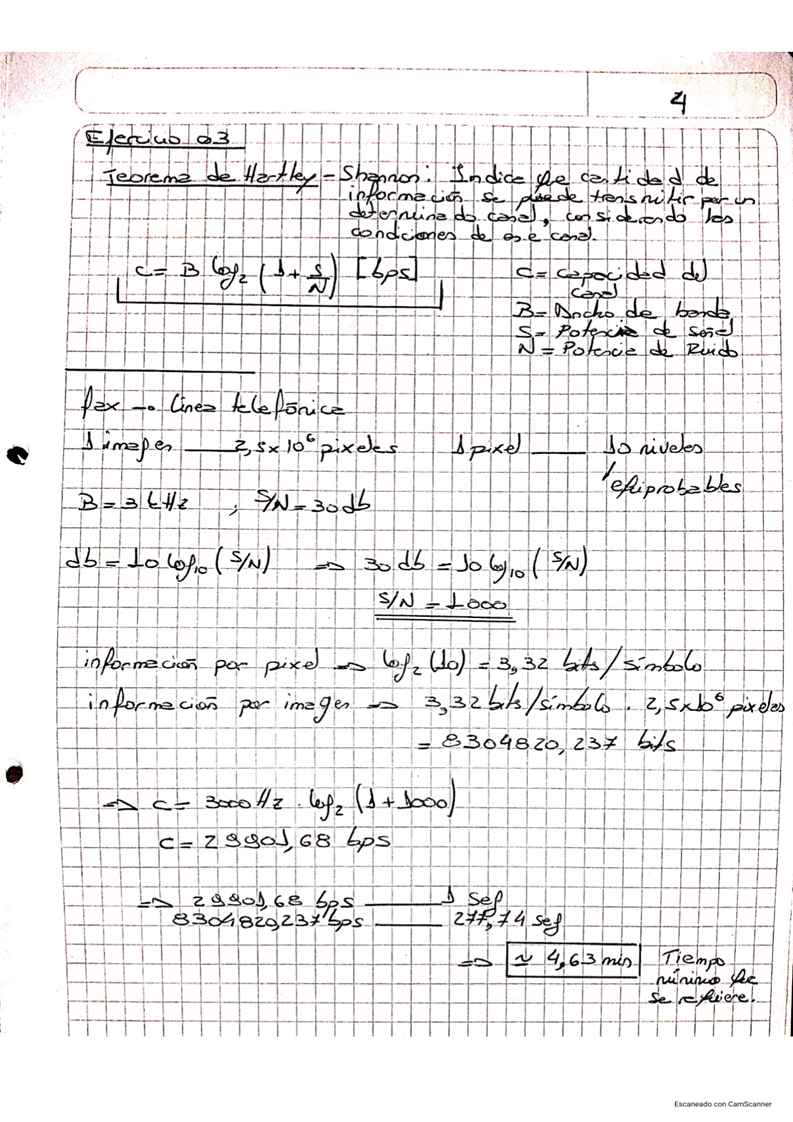 4
Ejercicio 03
Teorema de Hartley - Shannon: Indice que cantidad de
información se puede transmitir por un
determinado canal, considerando las
condiciones de ese canal.
C = B log₂ (1 + S/N) [bps]
C = Capacidad del
canal
B = Ancho de banda
S = Potencia de señal
N = Potencia de Ruido
fax → línea telefónica
1 imagen — 2,5x10⁶ pixeles 1 pixel — 10 niveles
equiprobables
B = 3 kHz ; S/N = 30 db
db = 10 log₁₀ (S/N) ⇒ 30 db = 10 log₁₀ (S/N)
S/N = 1000
información por pixel ⇒ log₂ (10) = 3,32 bits/símbolo
información por imagen ⇒ 3,32 bits/símbolo . 2,5x10⁶ pixeles
= 8304820,237 bits
⇒ C = 3000 Hz . log₂ (1 + 1000)
C = 29901,68 bps
⇒ 29901,68 bps — 1 seg
8304820,237 bps — 277,74 seg
⇒ ≃ 4,63 min Tiempo
mínimo que
se requiere.
Escaneado con CamScanner